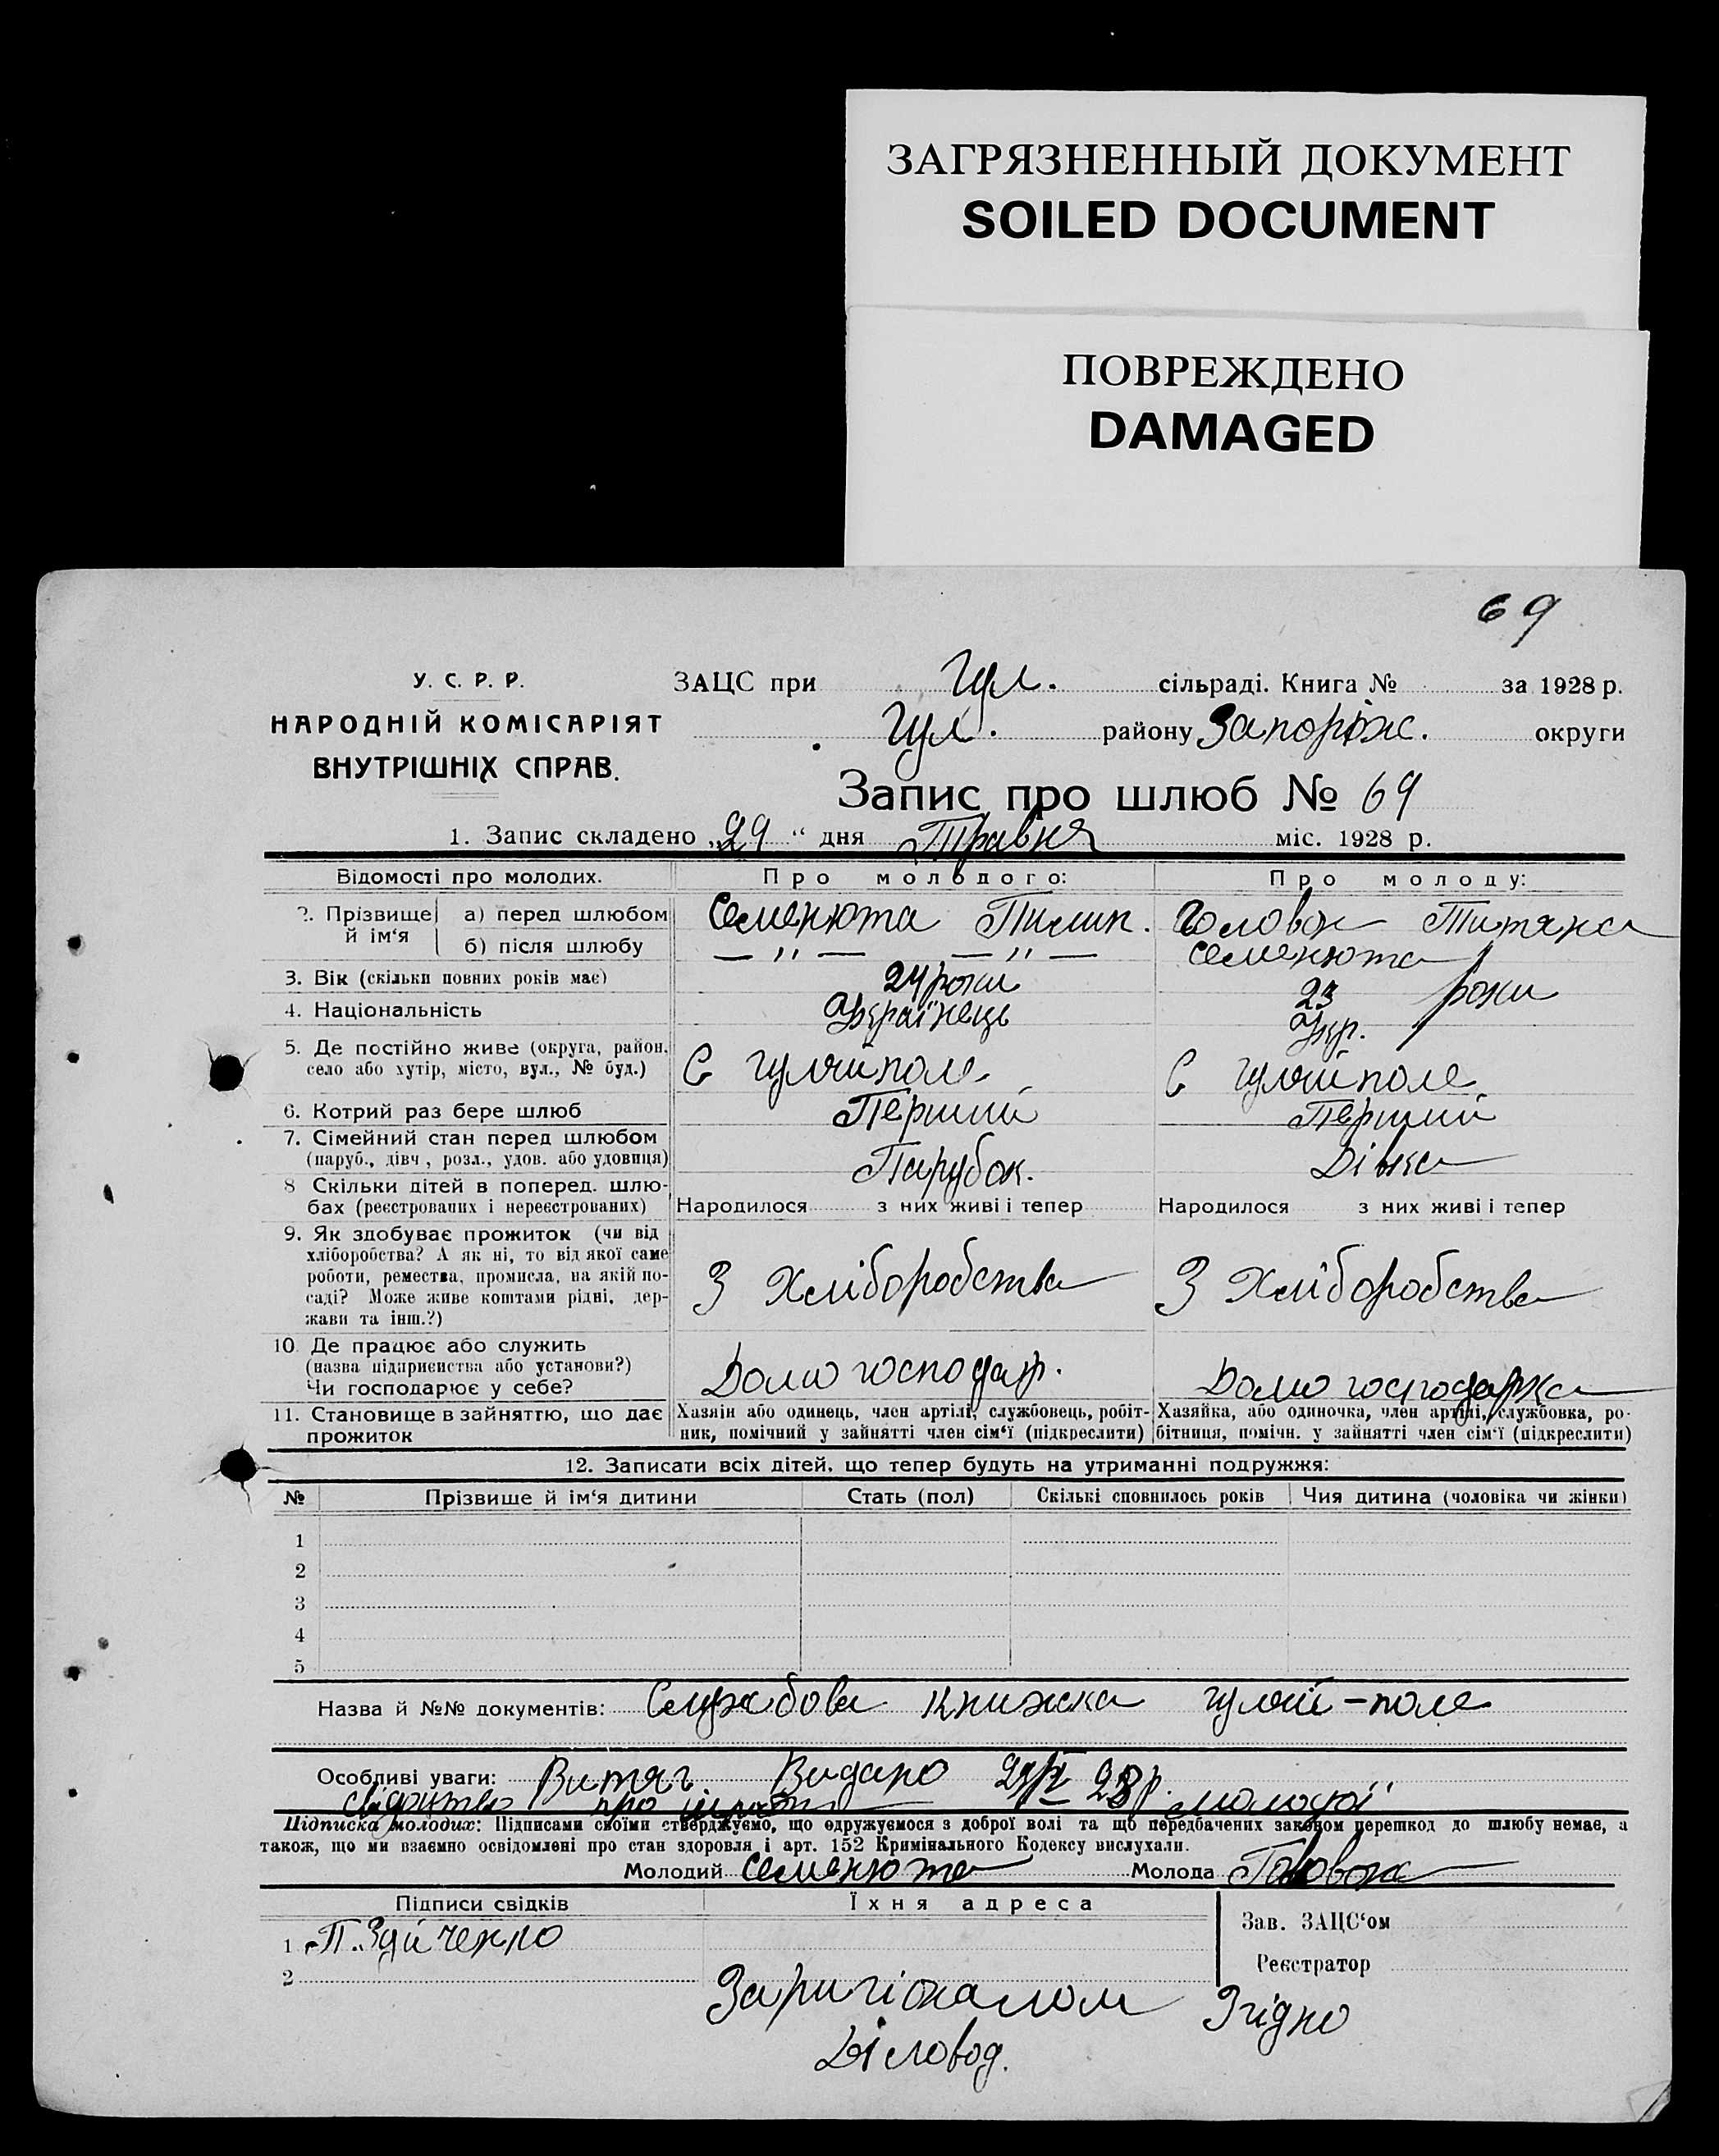 ЗАГРЯЗНЕННЫЙ ДОКУМЕНТ
SOILED DOCUMENT
ПОВРЕЖДЕНО
DAMAGED
69
У. С. Р. Р.
НАРОДНІЙ КОМІСАРІЯТ
ВНУТРІШНІХ СПРАВ.
ЗАЦС при Гул. сільраді. Книга № за 1928 р.
Гул. району Запоріж. округи
Запис про шлюб № 69
1. Запис складено „29“ дня Травня міс. 1928 р.
Відомості про молодих. Про молодого: Про молоду:
2. Прізвище й ім‘я а) перед шлюбом Семенюта Пилип. Головко Титяна
б) після шлюбу — " — — " — Семенюта
3. Вік (скільки повних років має) 24 роки 23 роки
4. Національність Українець Укр.
5. Де постійно живе (округа, район, село або хутір, місто, вул., № буд.) С Гуляйполе С Гуляйполе
6. Котрий раз бере шлюб Перший Перший
7. Сімейний стан перед шлюбом (паруб., дівч., розл., удов. або удовиця) Парубок. Дівка
8 Скільки дітей в поперед. шлюбах (реєстрованих і нереєстрованих) Народилося з них живі і тепер Народилося з них живі і тепер
9. Як здобуває прожиток (чи від хліборобства? А як ні, то від якої саме роботи, ремества, промисла, на якій посаді? Може живе коштами рідні, держави та інш.?) З Хліборобства З Хліборобства
10. Де працює або служить (назва підприємства або установи?) Чи господарює у себе? Домогосподар. Домогосподарка
11. Становище в зайняттю, що дає прожиток Хазяін або одинець, член артілі, службовець, робітник, помічний у зайнятті член сім‘ї (підкреслити) Хазяйка, або одиночка, член артілі, службовка, робітниця, помічн. у зайнятті член сім‘ї (підкреслити)
12. Записати всіх дітей, що тепер будуть на утриманні подружжя:
№ Прізвище й ім‘я дитини Стать (пол) Скількі сповнилось років Чия дитина (чоловіка чи жінки)
1
2
3
4
5
Назва й №№ документів: Службова книжка Гуляй-поле
Особливі уваги: Витяг. Видано 29/V 28 р.
свідоцтво про шлюб молодої
Підписка молодих: Підписами своїми стверджуємо, що одружуємося з доброї волі та що передбачених законом перешкод до шлюбу немає, а
також, що ми взаємно освідомлені про стан здоровля і арт. 152 Кримінального Кодексу вислухали.
Молодий Семенюта Молода Головко
Підписи свідків Їхня адреса Зав. ЗАЦС‘ом
1 П.
2 Реєстратор
Згідно
Діловод.